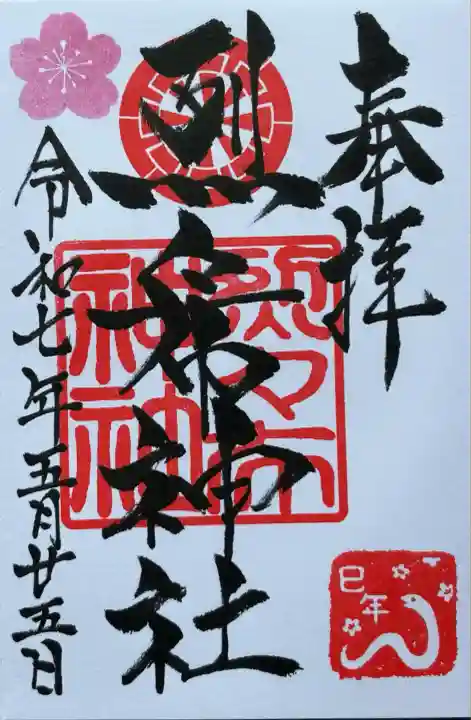 奉拝
烈々布神社
烈々布
神社
令和七年五月廿五日
巳年